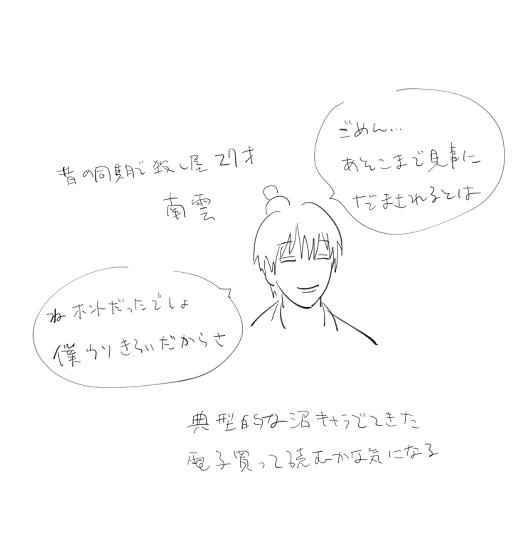 昔の同期で殺し屋27才
南雲
ごめん…
あそこまで見事に
だまされるとは
ねホントだったでしょ
僕ウソきらいだからさ
典型的な沼キャラでてきた
電子買って読むかな気になる